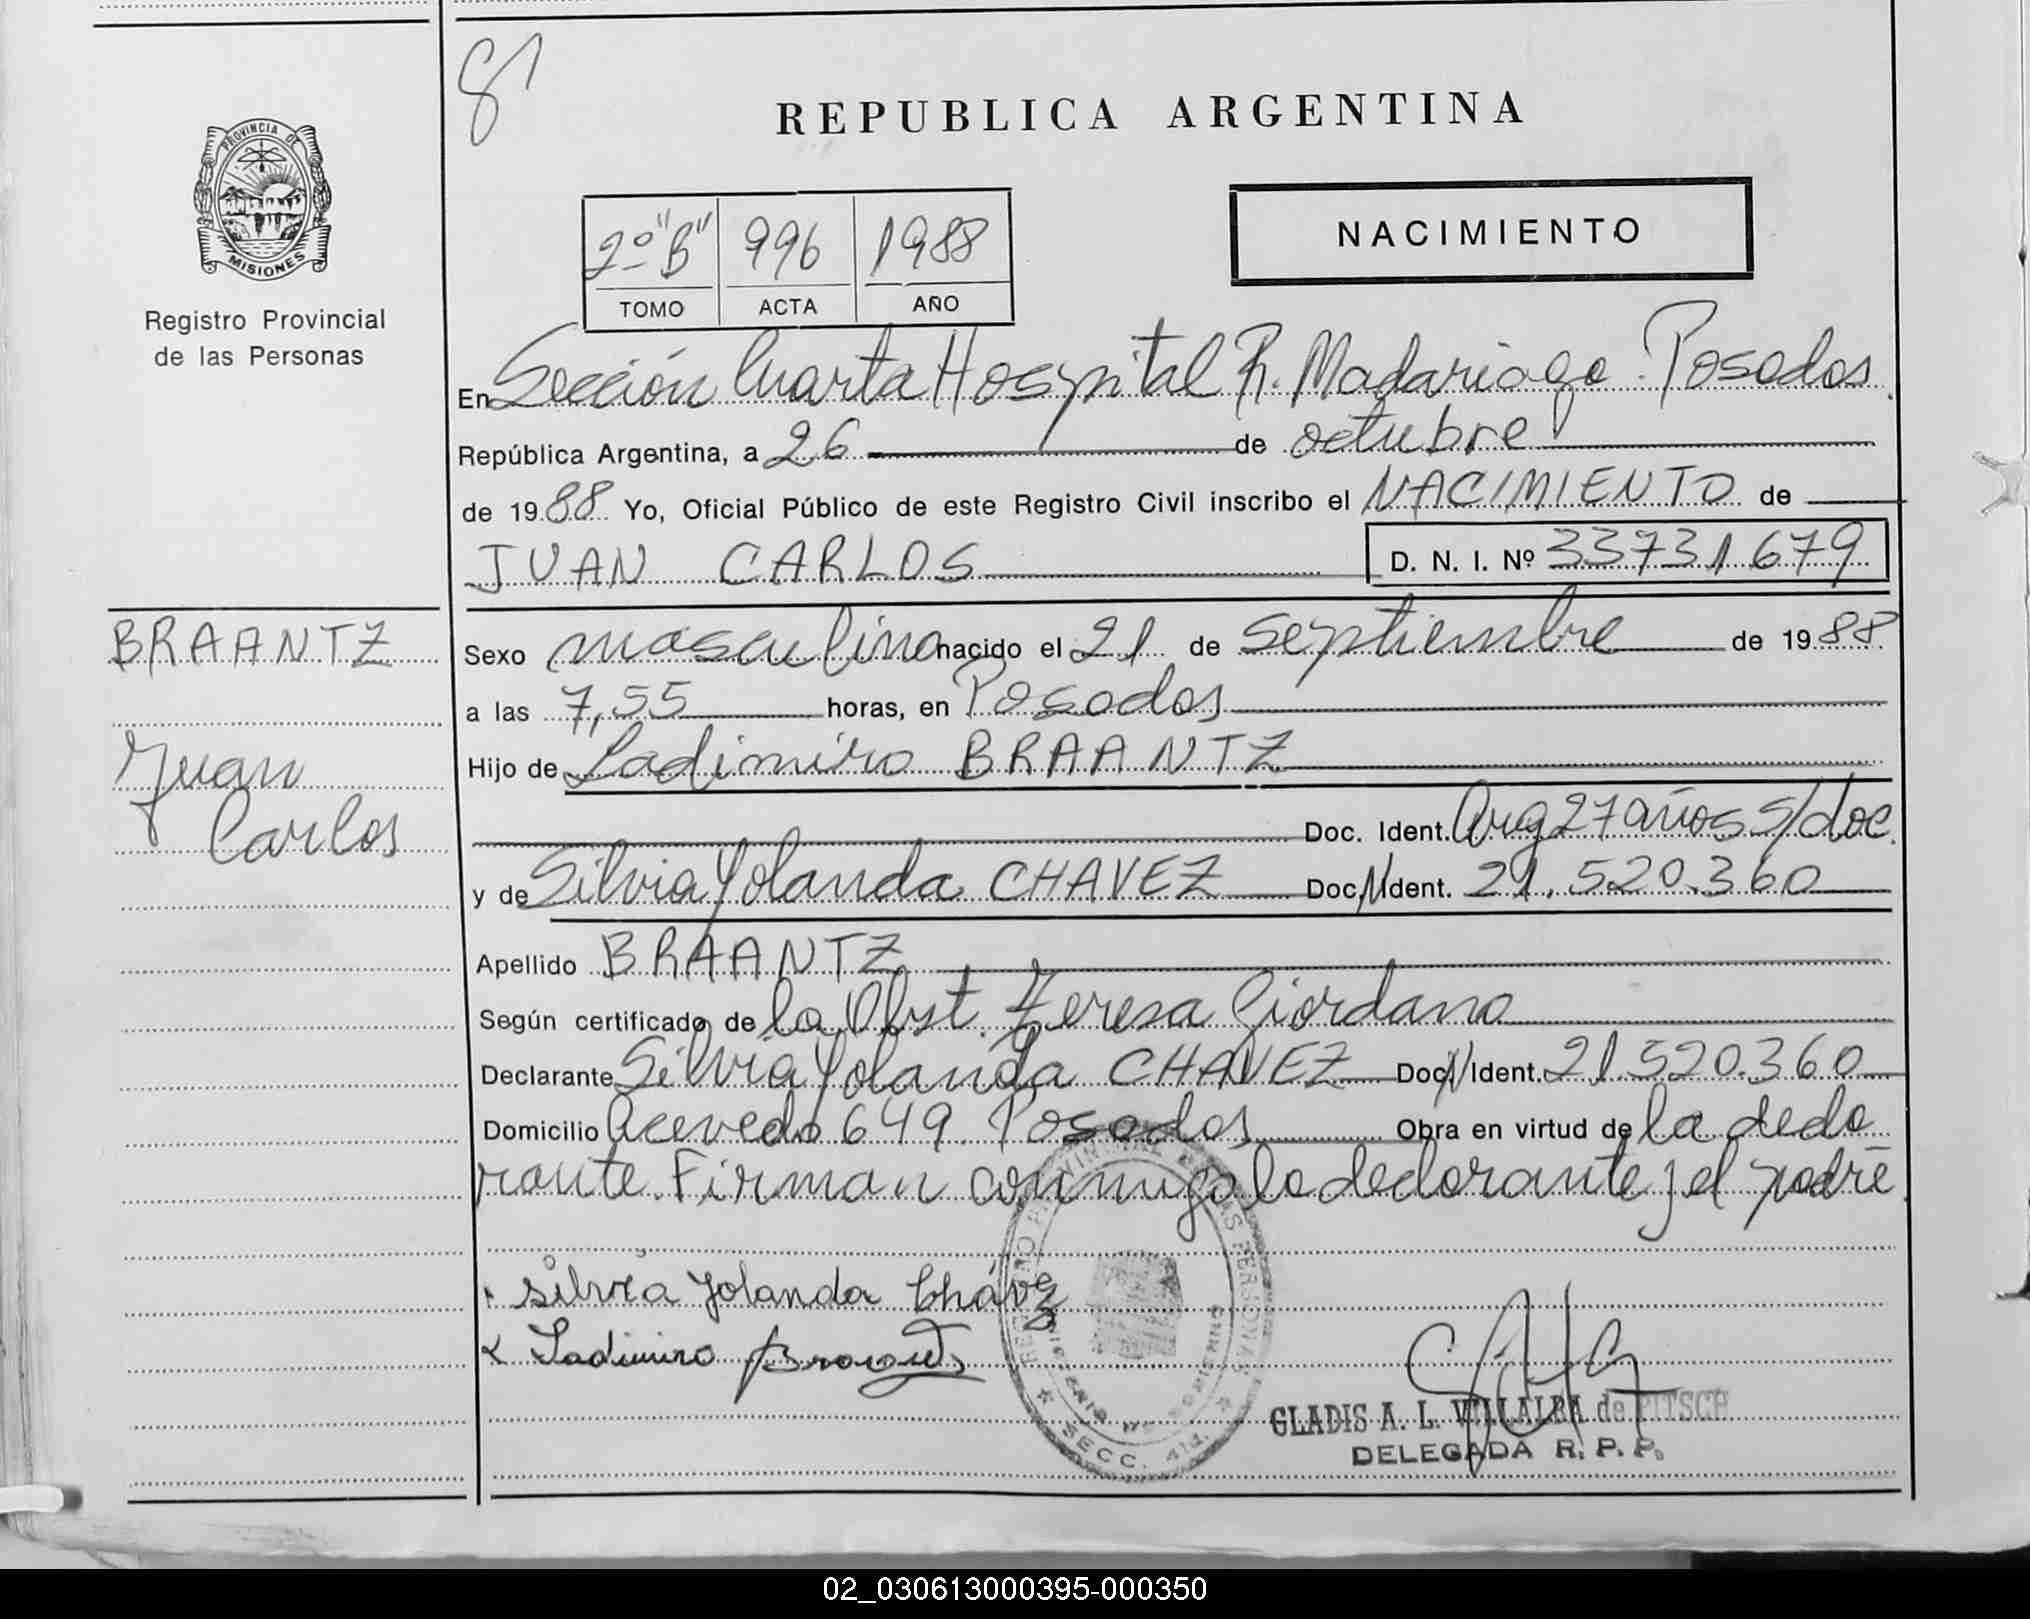 81
REPUBLICA ARGENTINA
PROVINCIA DE
MISIONES
Registro Provincial
de las Personas
2º "B" 996 1988
TOMO ACTA AÑO
NACIMIENTO
En Sección Cuarta Hospital R. Madariaga. Posadas
República Argentina, a 26 de octubre
de 1988 Yo, Oficial Público de este Registro Civil inscribo el NACIMIENTO de
JUAN CARLOS D. N. I. Nº 33731679
BRAANTZ
Juan
Carlos
Sexo masculino nacido el 21 de septiembre de 1988
a las 7,55 horas, en Posadas
Hijo de Ladimiro BRAANTZ
Doc. Ident. Arg 27 años s/doc.
y de Silvia Yolanda CHAVEZ Doc.N Ident. 21.520.360
Apellido BRAANTZ
Según certificado de la Obst. Teresa Giordano
Declarante Silvia Yolanda CHAVEZ Doc.N Ident. 21.520.360
Domicilio Acevedo 649 Posadas Obra en virtud de la decla
rante. Firman conmigo la declarante y el padre
Silvia Yolanda Cháv
Ladimiro
REGISTRO PROVINCIAL DE LAS PERSONAS
MINISTERIO DE GOBIERNO
SECC. 4ta.
GLADIS A. L. VILLALBA de PITSCH
DELEGADA R. P. P.
02_030613000395-000350